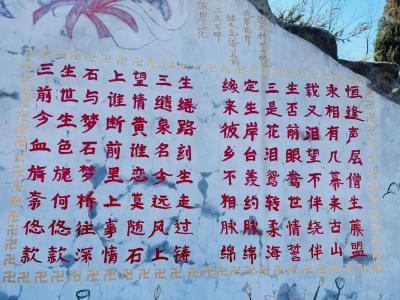 三生石上望三生
前世与谁情缱绻
今生梦断黄泉路
血色石前谁名刻
旖旎梦里恋今生
奈何桥上莫远走
悠悠往事随风过
款款深情石上铸
缘定三生载永恒
来生是否又相逢
彼岸花前泪有声
乡台泪眼望几层
不羡鸳鸯不幕僧
相约转世伴来生
脉脉柔情绕古藤
绵绵海誓伴山盟